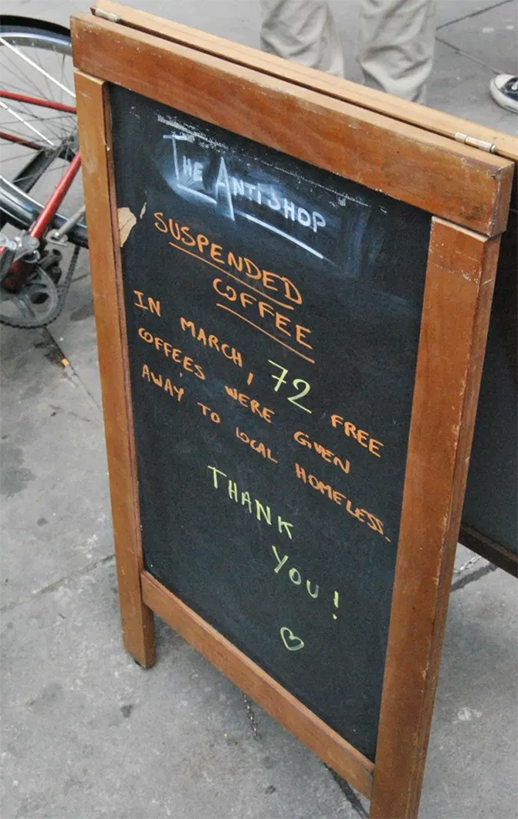 THE ANTISHOP
SUSPENDED
COFFEE
IN MARCH, 72 FREE
COFFEES WERE GIVEN
AWAY TO LOCAL HOMELESS.
THANK
YOU!